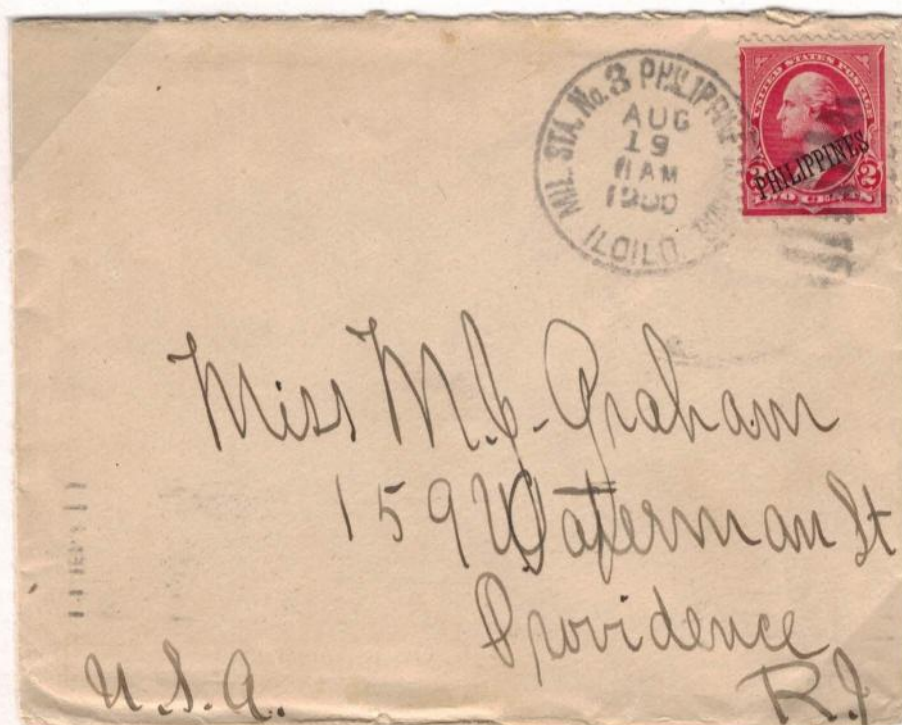 MIL. STA. No. 3 PHILIPPINE
AUG
19
11 AM
1900
ILOILO
UNITED STATES POSTAGE
PHILIPPINES
2 2
TWO CENTS
Miss M. J. Graham
159 Waterman St
Providence
R.I.
U.S.A.